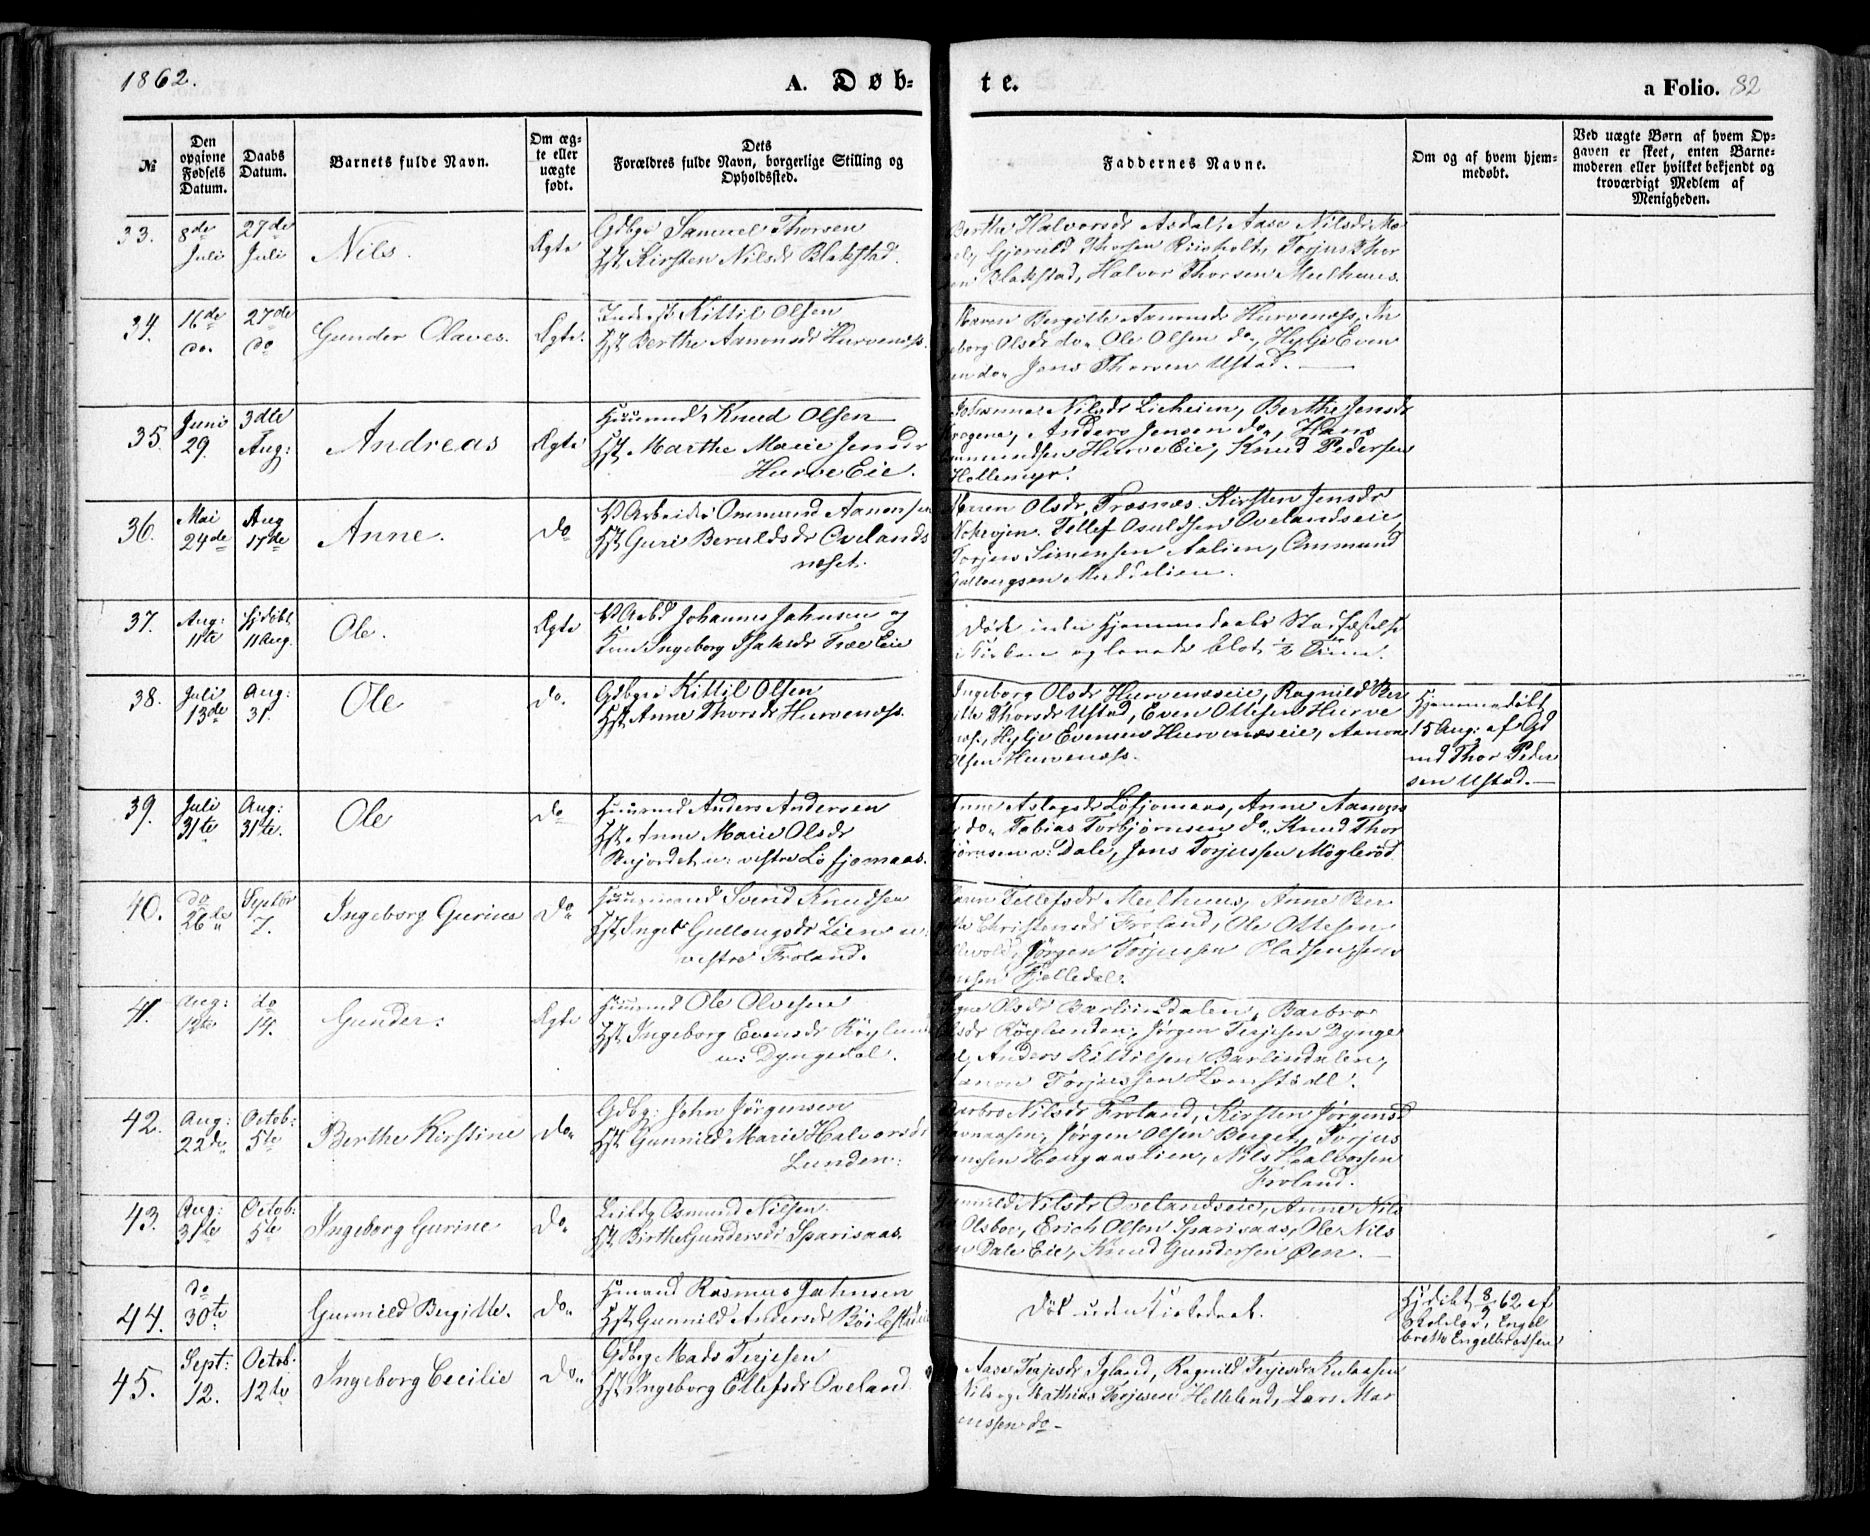 1862.
A. Døb-
te.
a Folio. 82
№
Den
opgivne
Fødsels
Datum.
Daabs
Datum.
Barnets fulde Navn.
Om æg-
te eller
uægte
født.
Dets
Forældres fulde Navn, borgerlige Stilling og
Opholdssted.
Faddernes Navne.
Om og af hvem hjem-
medøbt.
Ved uægte Børn af hvem Op-
gaven er skeet, enten Barne-
moderen eller hvilket bekjendt og
troværdigt Medlem af
Menigheden.
33.
8de
Juli
27de
Juli
Nils.
Ægte
Gdbgr Samuel Thorsen
Hst Kirsten Nilsdr Blakstad.
Berthe Halvorsdr Asdal, Aase Nilsdr
Thorsen Riisholt, Torjus Thor
Blakstad, Halvor Thorsen Melhuus.
34.
16de
do.
27de
do
Gunder Olaves.
Ægte.
Inderst Kittil Olsen
Hst Berthe Aanonsdr Hurvenæss.
Maren Bergitte Aanonsdr Hurvenæss, In
geborg Olsdr do. Ole Olsen do., Hylje Even
sen do. Jens Thorsen Ustad.
35.
Juni
29.
3dte
Aug:
Andreas
Ægte
Huusmd Knud Olsen
Hst Marthe Marie Jensdr
Hurve Eie.
Johanne Nilsdr Lieheien, Berthe Jensdr
Anders Jensen do., Hans
Hurve Eie, Knud Pedersen
Hollemyr.
36.
Mai
24de
Aug
17de
Anne.
do
Arbeider Ommund Aanonsen
Hst Guri Beruldsdr Ovelands
næset.
Maren Olsdr Træsnæs. Kirsten Jensdr
Tellef Osuldsen Ovelandseie
Torjus Simensen Aalien, Ommund
Gullougsen
37.
Aug:
11te
Hjdøbt
11 Aug.
Ole.
Ægte
Arbd Johannes Jahnsen og
Ingeborg Isaksdr Træe Eie
Døde inden Hjemmedaabs Stadfæstelse
i Kirken og levede blot ½ Time.
38.
Juli
13de
Aug:
31.
Ole
do.
Gdbgr Kittil Olsen
Hst Anne Thorsdr Hurvenæss.
Ingeborg Olsdr Hurvenæseie, Ragnild Ber
gitte Thorsdr Ustad, Even Ottesen Hurve
næss, Hylje Evensen Hurvenæseie, Aanon
Olsen Hurvenæss.
Hjemmedøbt
15 Aug: af Gd
md Thor Peder
sen Ustad.
39.
Juli
31te
Aug:
31te.
Ole
do
Huusmd Anders Andersen
Hst Anne Marie Olsdr
u: vestre Løfjomaas.
Anne Aslagsdr Løfjomaas, Anne Aanons
dr do. Tobias Torbjørnsen do. Knud Thor
bjørnsen v: Dale, Jens Torjussen Møglerød
40.
do
26de
Septbr
7.
Ingeborg Gurine
do.
Huusmand Svend Knudsen
Hst Inger Gullougsdr Lien u:
vestre Froland.
Tellefsdr Melhuus, Anne Ber
Christensdr Froland, Ole Ottesen
Jørgen Torjussen Pladsen, Jens
Fjelledal.
41.
Aug:
do
14.
Gunder:
Ægte
Huusmd Ole Olvesen
Hst Ingeborg Evensdr Røylund
u: Dyngedal.
Olsdr Barlindalen, Barbroe
Olsdr Røylunden, Jørgen Terjesen Dynge
dal, Anders Kittilsen Barlindalen,
Aanon Torjussen
42.
Aug:
22de
Octob:
5te
Berthe Kirstine
do.
Gdbg: John Jørgensen
Hst Gunnild Marie Halvorsdr
Lunden.
Barbro Nilsdr Froland, Kirsten Jørgensd
Jørgen Olsen Berget, Torjus
Hougaaslien, Nils Halvorsen
Froland.
43.
Aug:
31te
Octob:
5te
Ingeborg Gurine
do.
Osmund Nilsen
Hst Birthe Gundersdr Sparisaas.
Gunnild Nilsdr Ovelandseie, Anne Nils
dr Olsboe, Erich Olsen Sparisaas, Ole Nils
sen Dale Eie, Knud Gundersen Øen.
44.
do
30te
Gunnild Bergitte.
do.
Hmand Rasmus Jahnsen
Hst Gunnild Andersdr Bøilestadeie
Død uden Kirkedaab.
Hjdøbt 8/9 62 af
Engel
brekt Engelbretsen
45.
Sept:
12.
Octob.
12te
Ingeborg Cecilie
do.
Gdbg Mads Terjesen
Hst Ingeborg Ellefsdr Oveland
Aase Terjesdr Igland, Ragnild Terjesdr
Nils og Mathias Terjesen Helleland, Lars Mar
cussen do.